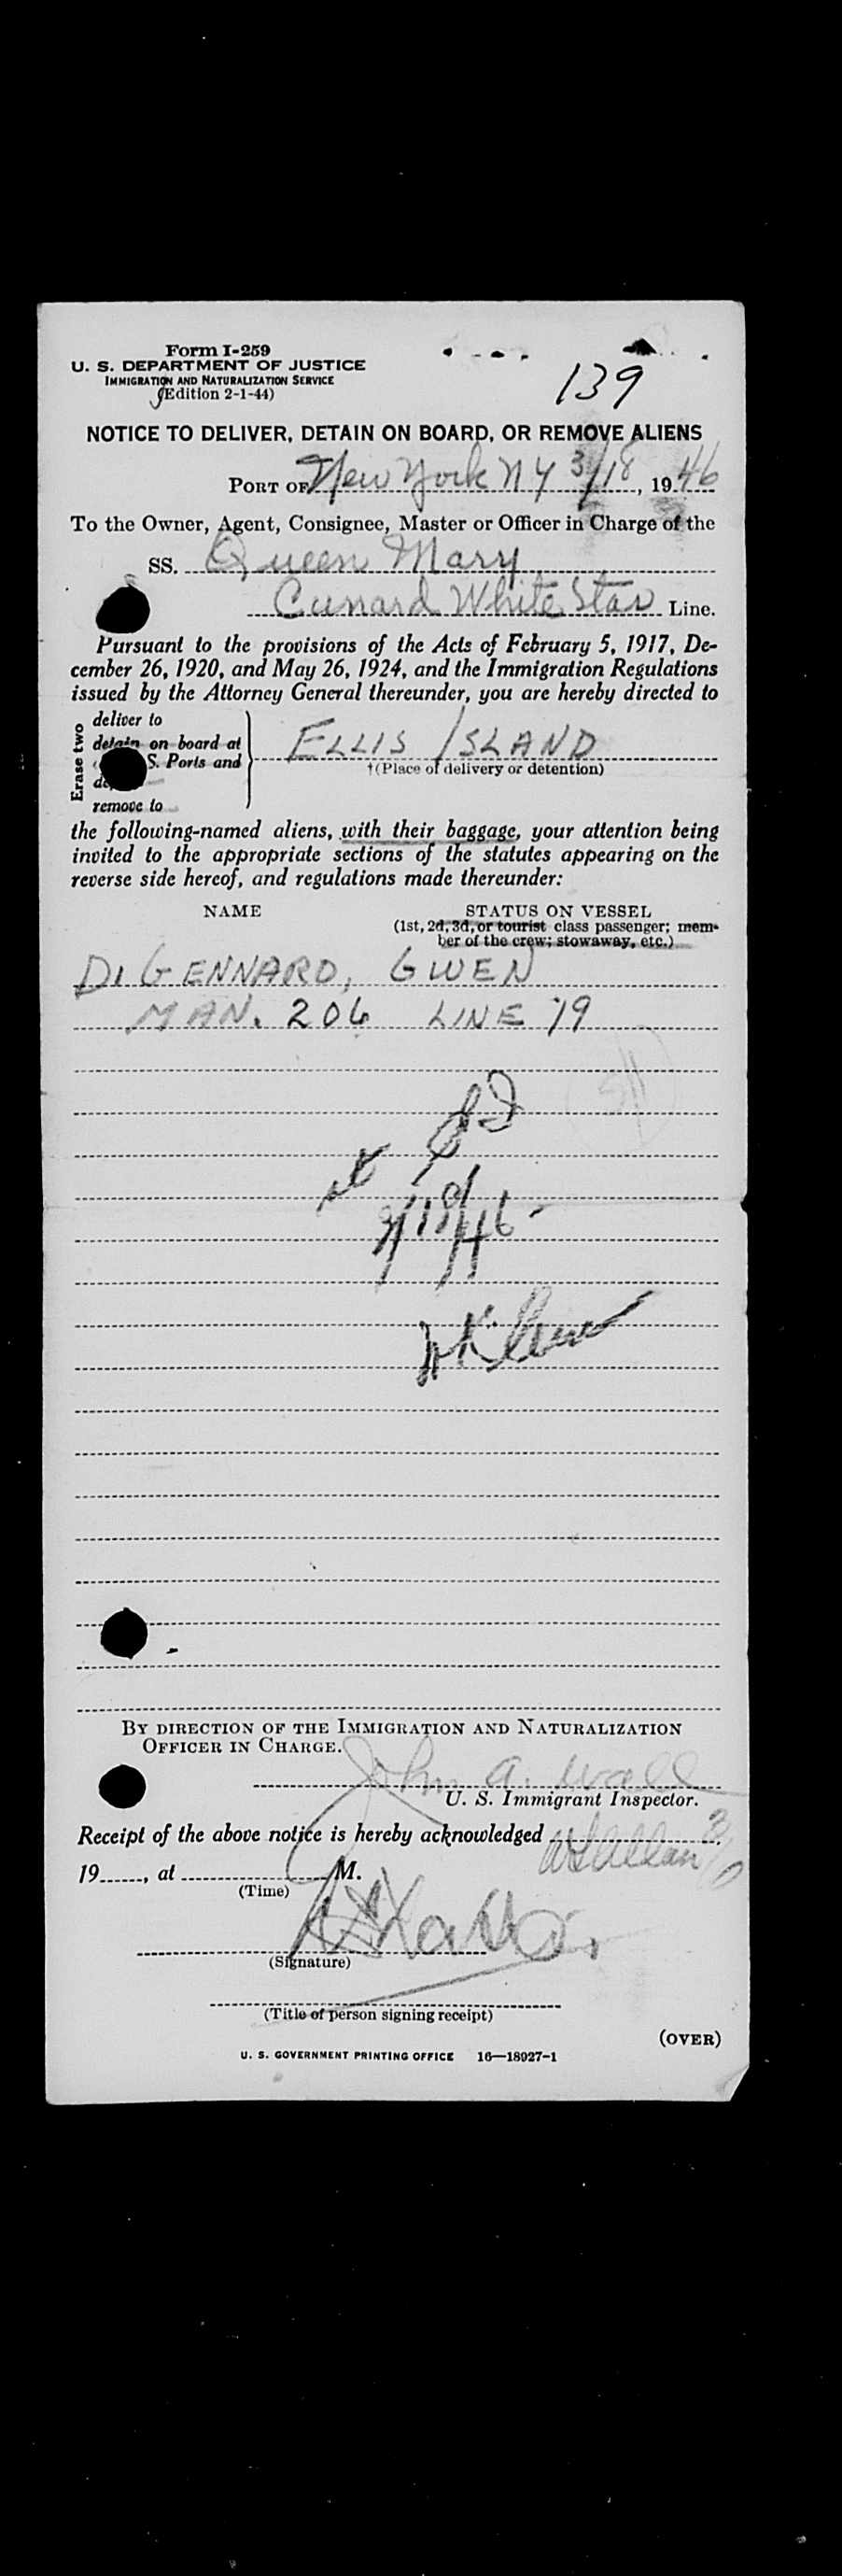 Form I-259
U. S. DEPARTMENT OF JUSTICE
IMMIGRATION AND NATURALIZATION SERVICE
(Edition 2-1-44)
139
NOTICE TO DELIVER, DETAIN ON BOARD, OR REMOVE ALIENS
PORT OF New York NY 3/18, 1946
To the Owner, Agent, Consignee, Master or Officer in Charge of the
SS. Queen Mary
Cunard White Star Line.
Pursuant to the provisions of the Acts of February 5, 1917, De-
cember 26, 1920, and May 26, 1924, and the Immigration Regulations
issued by the Attorney General thereunder, you are hereby directed to
Erase two
deliver to
detain on board at
S. Ports and
remove to
ELLIS ISLAND
†(Place of delivery or detention)
the following-named aliens, with their baggage, your attention being
invited to the appropriate sections of the statutes appearing on the
reverse side hereof, and regulations made thereunder:
NAME
STATUS ON VESSEL
(1st, 2d, 3d, or tourist class passenger; mem-
ber of the crew; stowaway, etc.)
DI GENNARO, GWEN
MAN. 206 LINE 19
BY DIRECTION OF THE IMMIGRATION AND NATURALIZATION
OFFICER IN CHARGE.
John A. Wall
U. S. Immigrant Inspector.
Receipt of the above notice is hereby acknowledged
19, at M.
(Time)
(Signature)
(Title of person signing receipt)
(OVER)
U. S. GOVERNMENT PRINTING OFFICE 16—18927-1